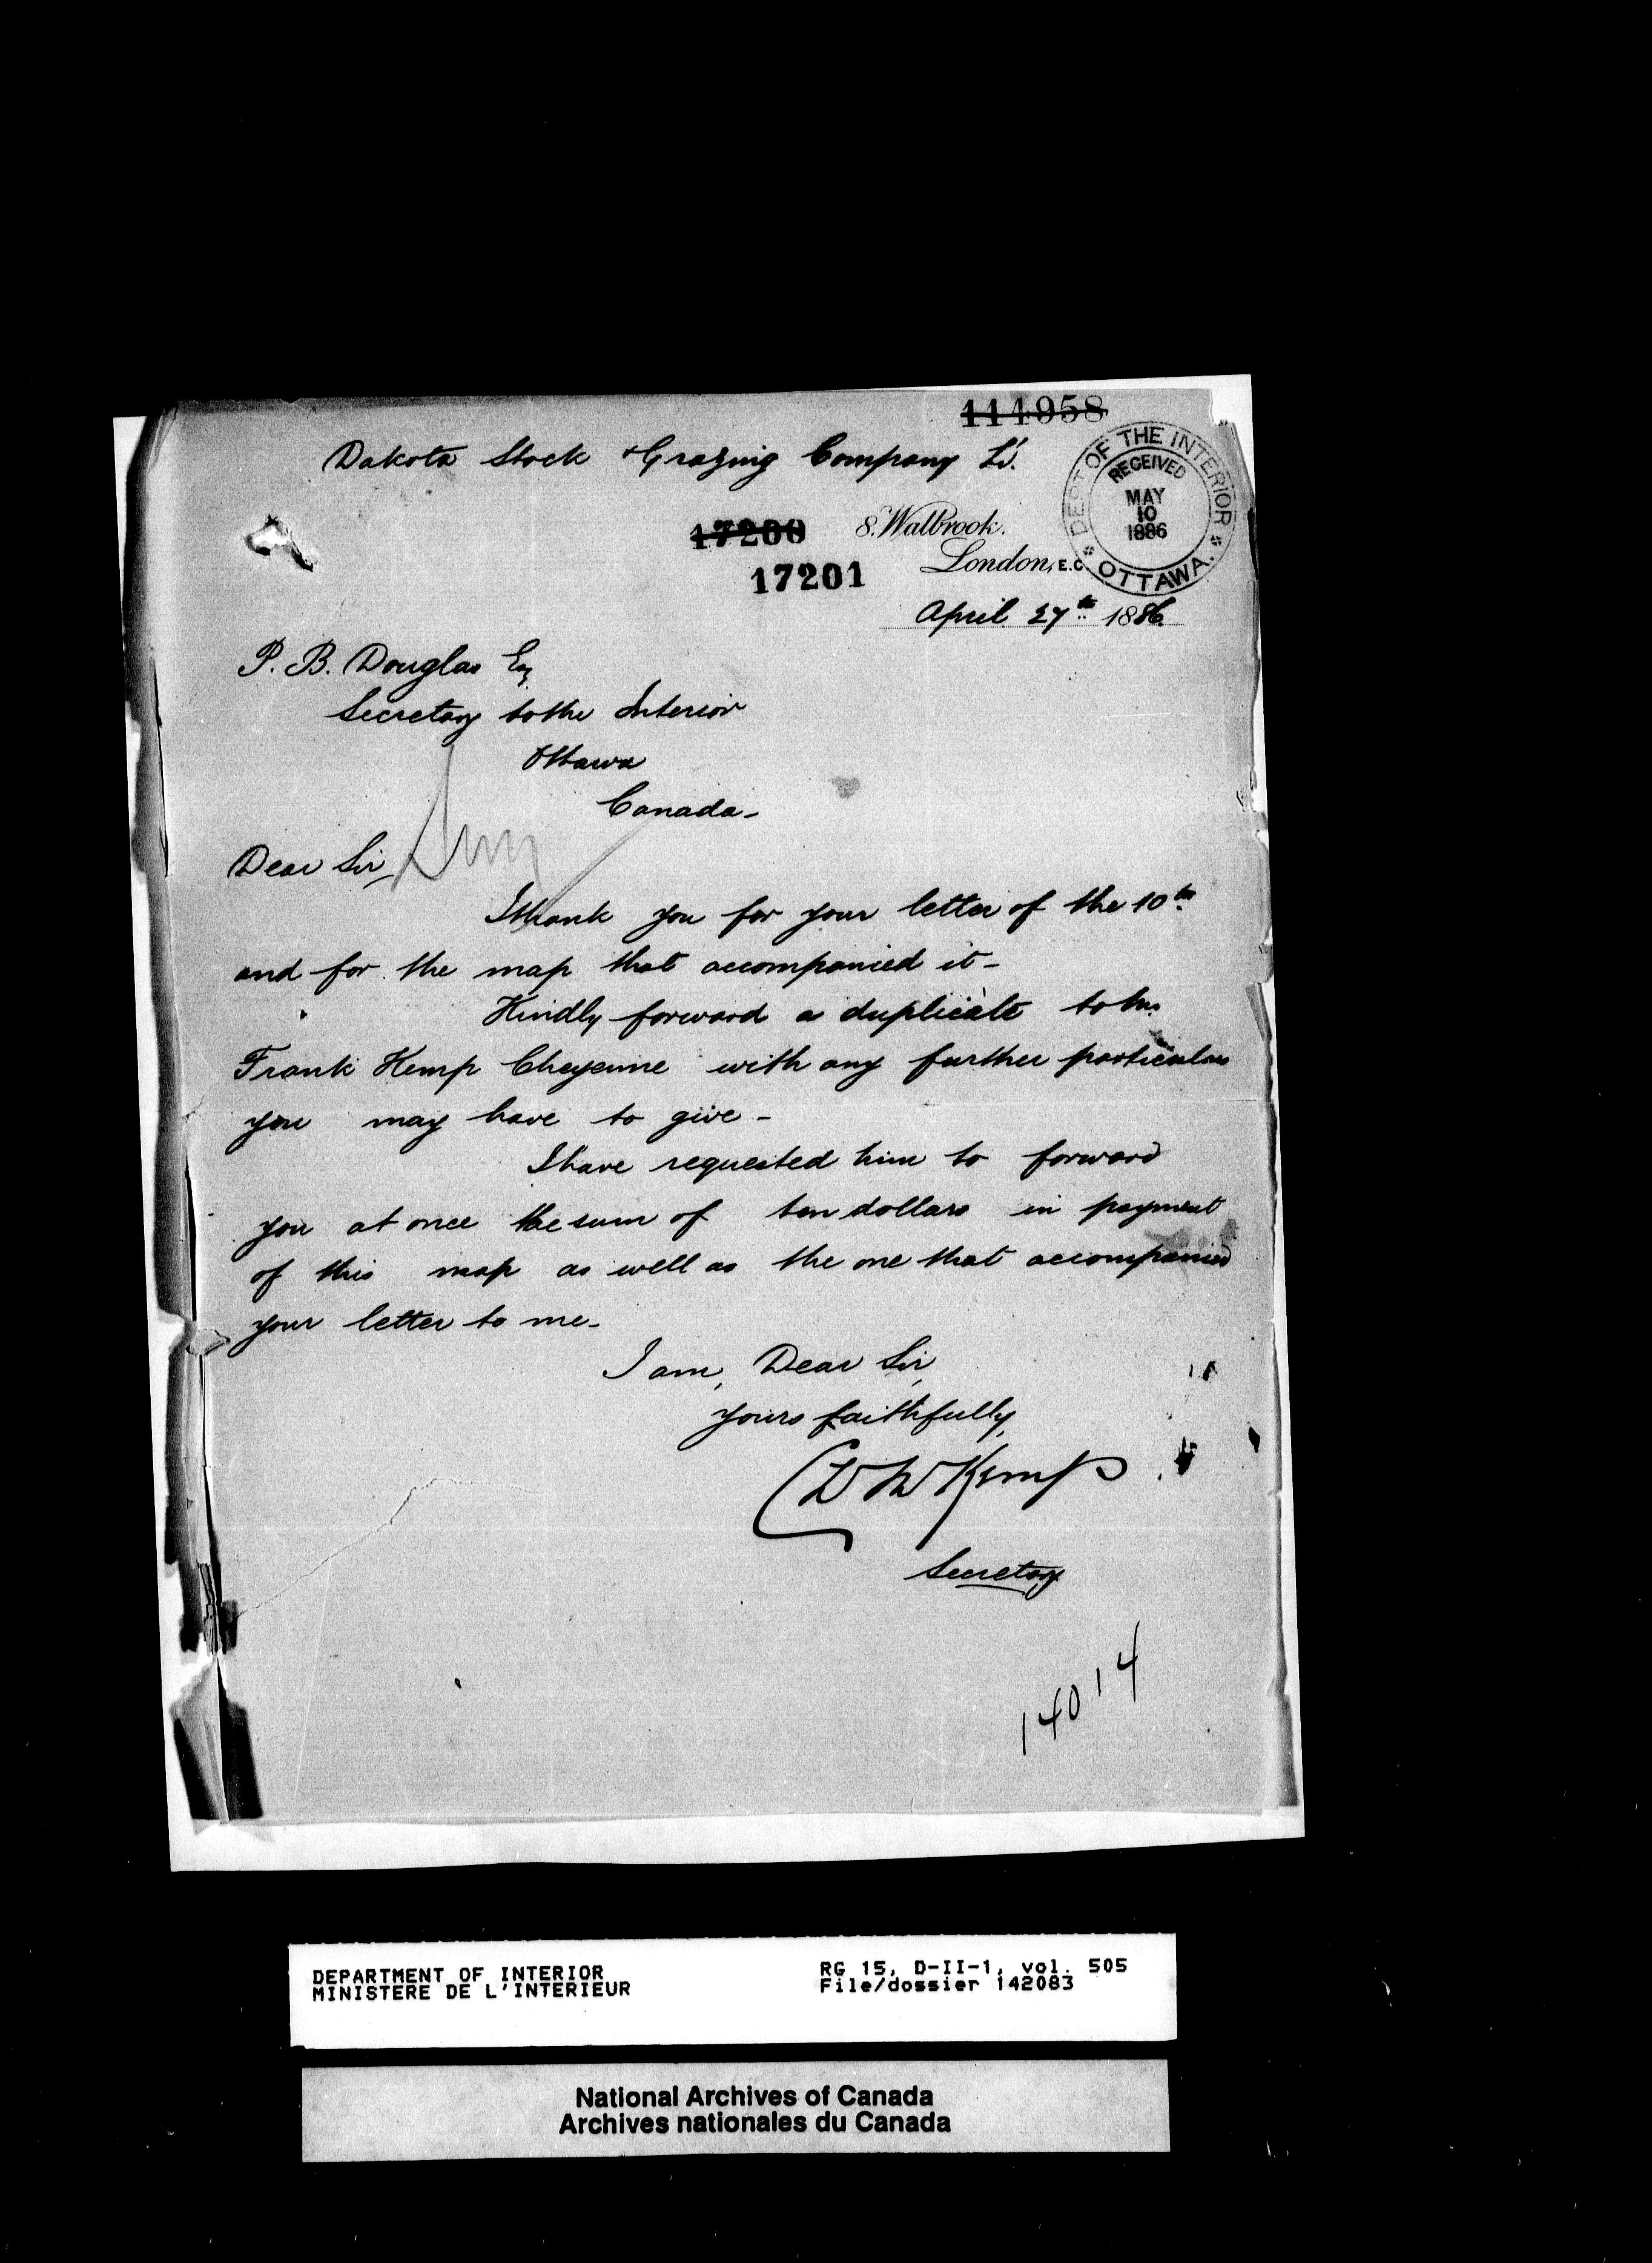 114958
Dakota Stock & Grazing Company Ld.
DEPT OF THE INTERIOR
RECEIVED
MAY
10
1886
OTTAWA.
17200
8. Walbrook.
London, E.C.
17201
April 27th 1886.
P. B. Douglas Esq
Secretary to the Interior
Ottawa
Canada-
Dear Sir,
I thank you for your letter of the 10th
and for the map that accompanied it-
Kindly forward a duplicate to Mr.
Frank Kemp Cheyenne with any further particulars
you may have to give-
I have requested him to forward
you at once the sum of ten dollars in payment
of this map as well as the one that accompanied
your letter to me-
I am, Dear Sir,
yours faithfully,
Kemp
Secretary.
14014
DEPARTMENT OF INTERIOR
MINISTERE DE L'INTERIEUR
RG 15, D-II-1, vol. 505
File/dossier 142083
National Archives of Canada
Archives nationales du Canada